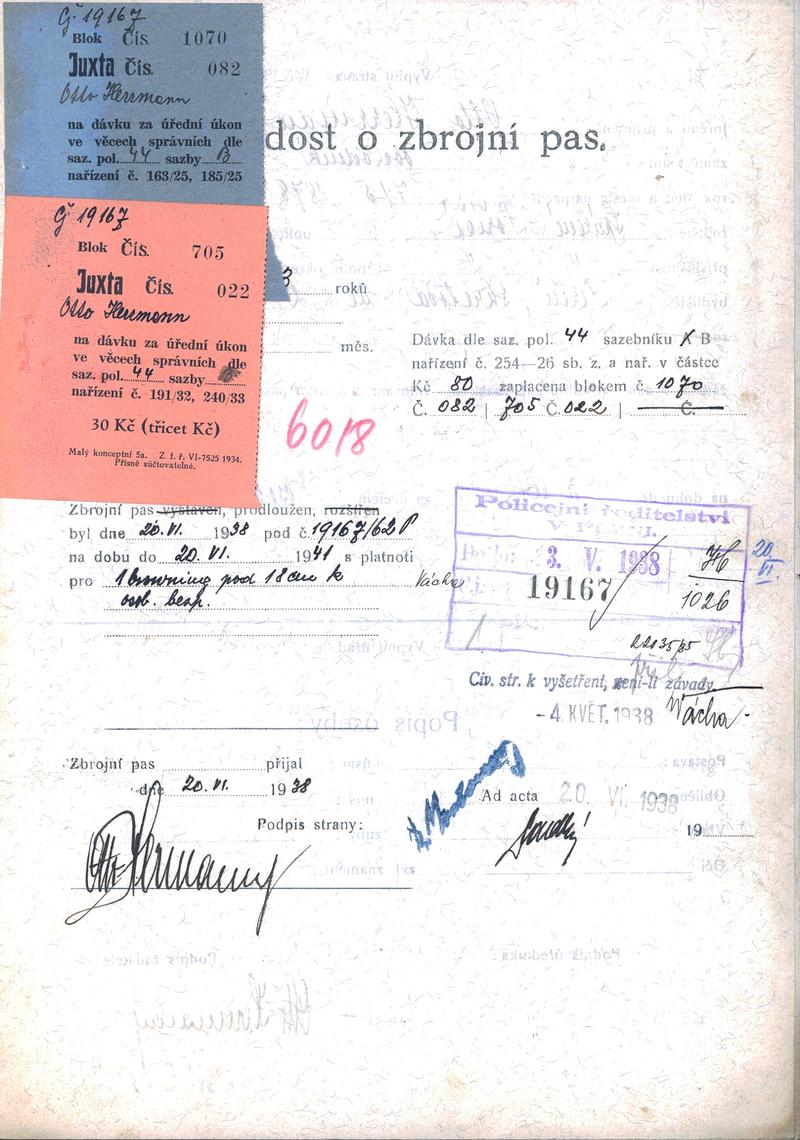 Č 19167
Blok Čís. 1070
Juxta Čís. 082
Otto Herrmann
na dávku za úřední úkon
ve věcech správních dle
saz. pol. 44 sazby B
nařízení č. 163/25, 185/25
dost o zbrojní pas.
Č 19167
Blok Čís. 705
Juxta Čís. 022
Otto Herrmann
na dávku za úřední úkon
ve věcech správních dle
saz. pol. 44 sazby
nařízení č. 191/32, 240/33
30 Kč (třicet Kč)
Malý konceptní 5a. Z. f. ř. VI-7525 1934.
Přísně súčtovatelné.
3 roků
měs.
Dávka dle saz. pol. 44 sazebníku A B
nařízení č. 254—26 sb. z. a nař. v částce
Kč 80 zaplacena blokem č. 1070
Č. 082 | 705 Č. 022 | Č.
6018
Zbrojní pas vystaven, prodloužen, rozšířen
byl dne 20. VI. 1938 pod č. 19167/62 P
na dobu do 20. VI. 1941 s platností
pro 1 browning pod 18 cm k
osob. besp.
Vácha
Policejní ředitelství
3. V. 1938
19167
1026
20.
VI.
22035/35
Civ. str. k vyšetření, není-li závady.
- 4. KVĚT. 1938 Vácha
Zbrojní pas přijal
dne 20. VI. 1938
Podpis strany:
Otto Herrmann
Ad acta 20. VI. 1938
19
Popis osoby
Podpis úředníka: